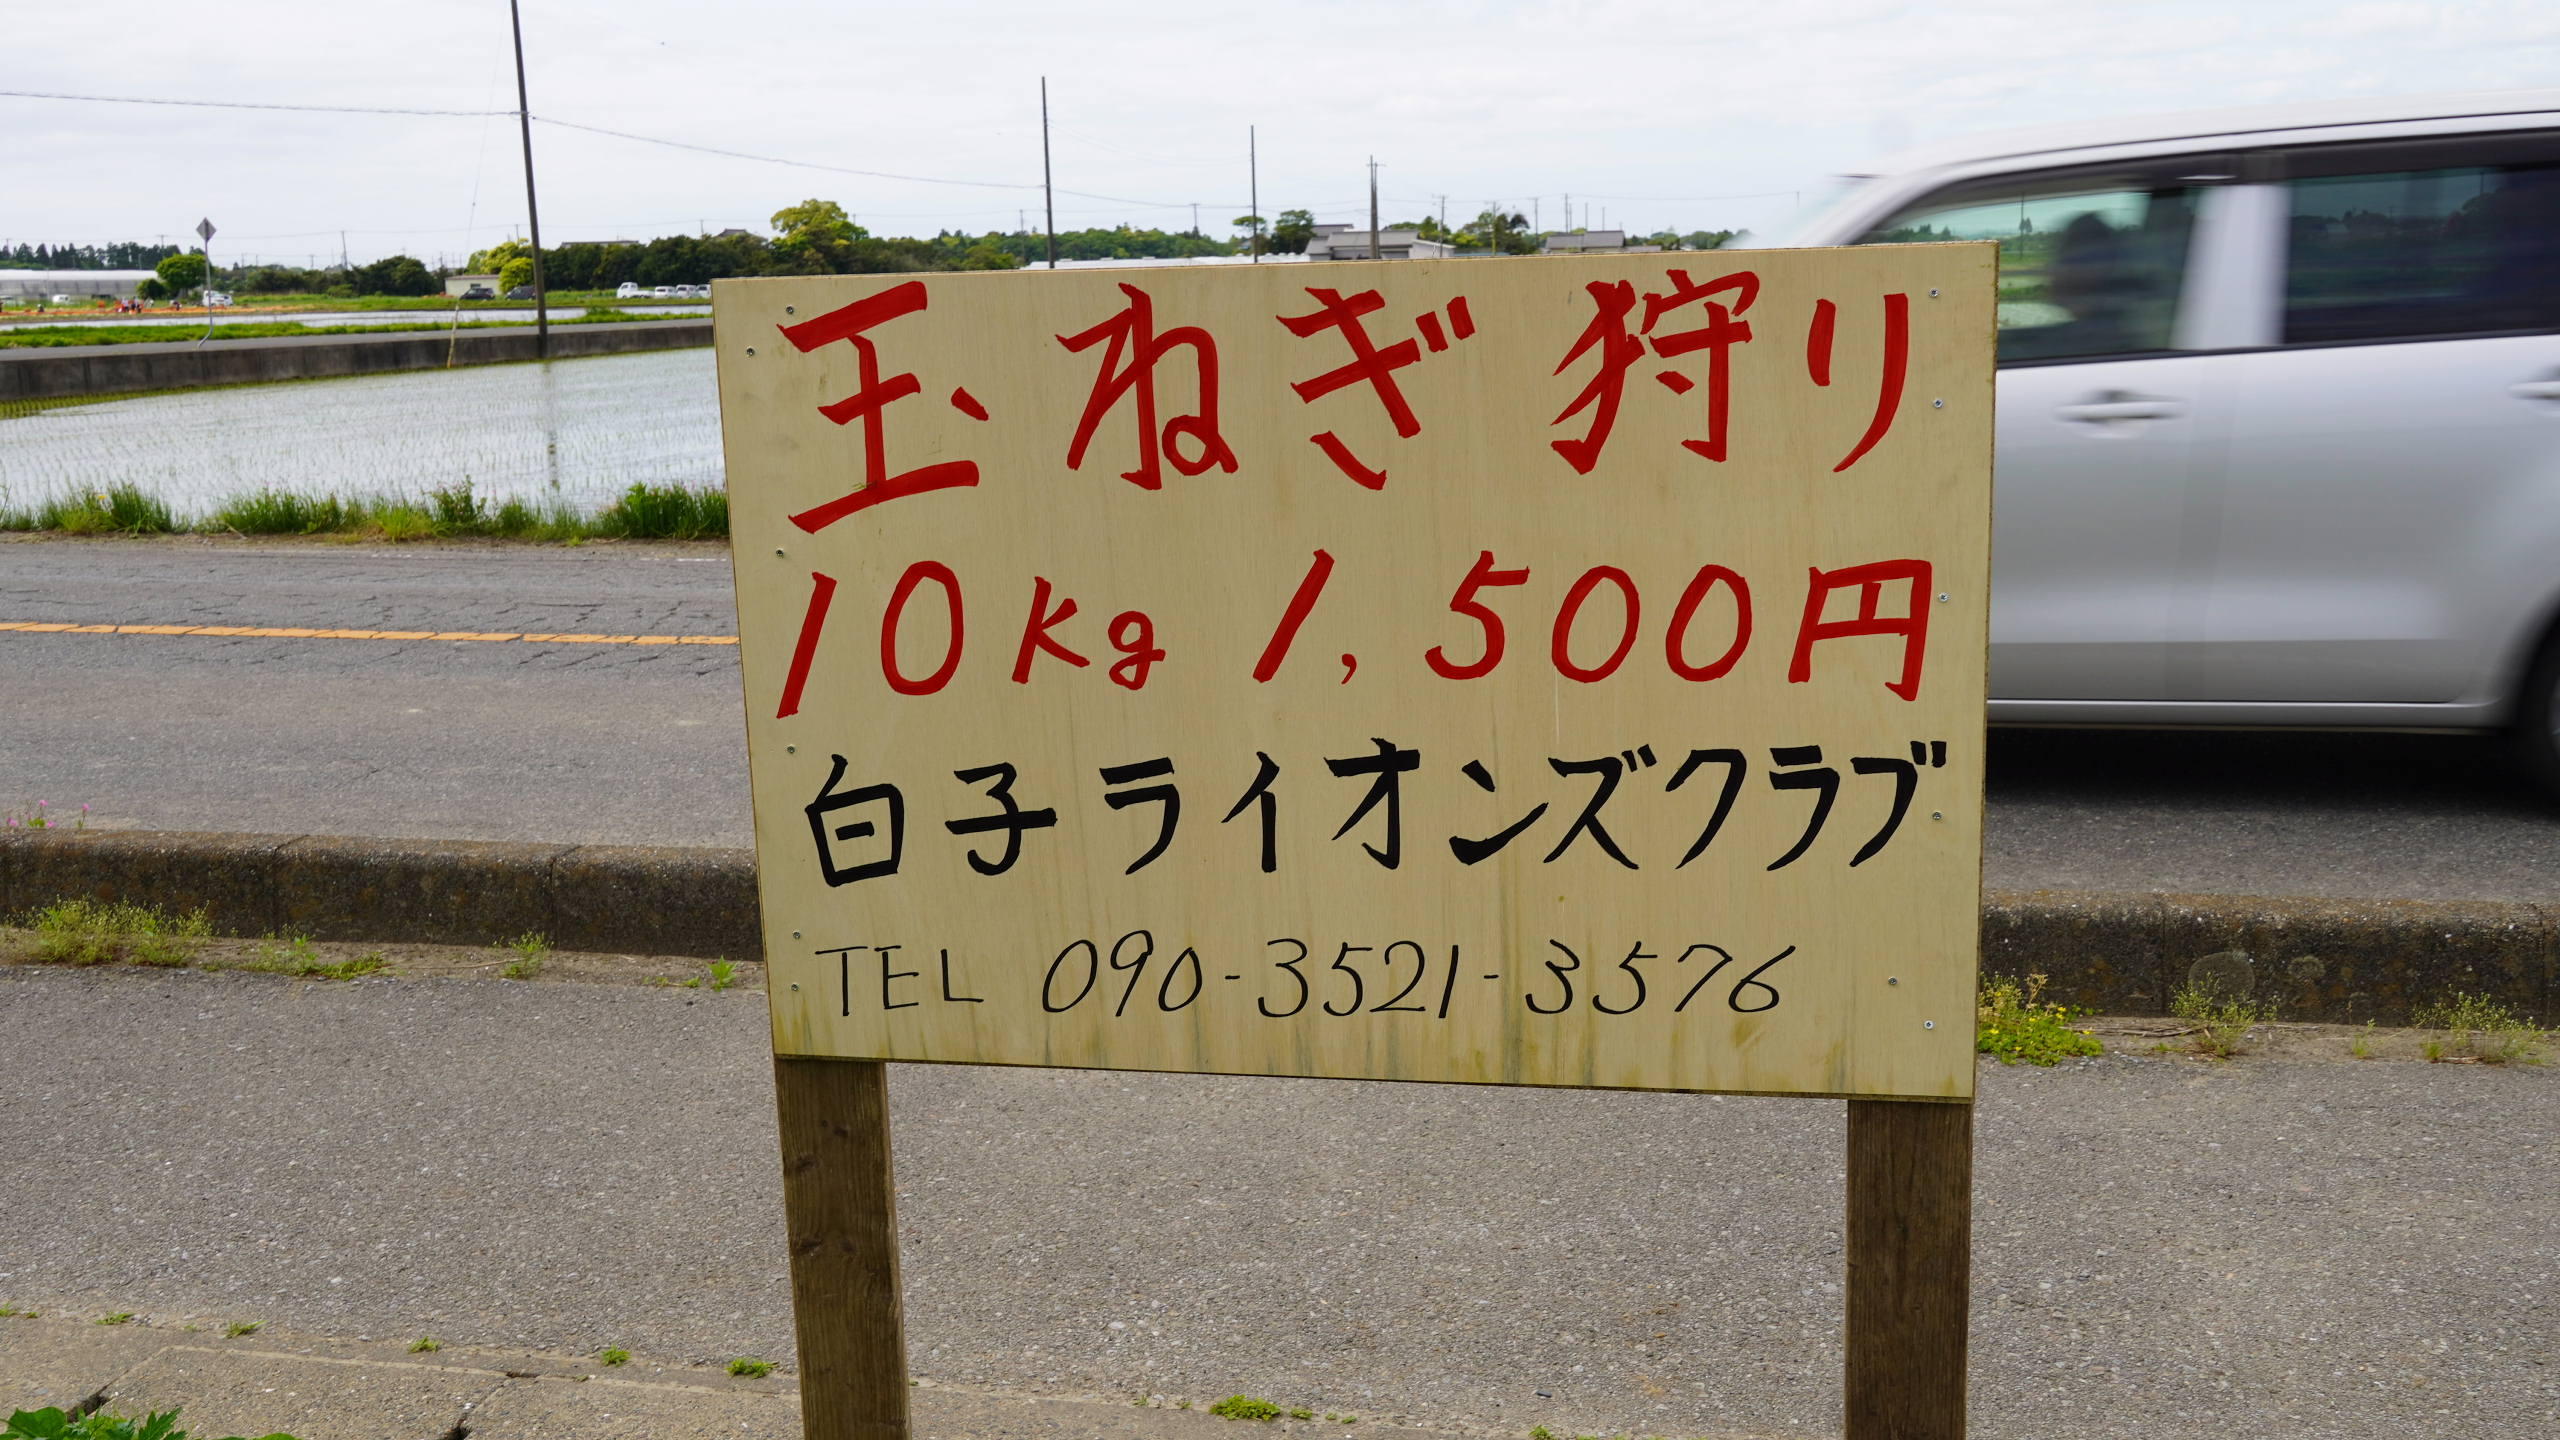 玉ねぎ狩り
10kg 1,500円
白子ライオンズクラブ
TEL 090-3521-3576